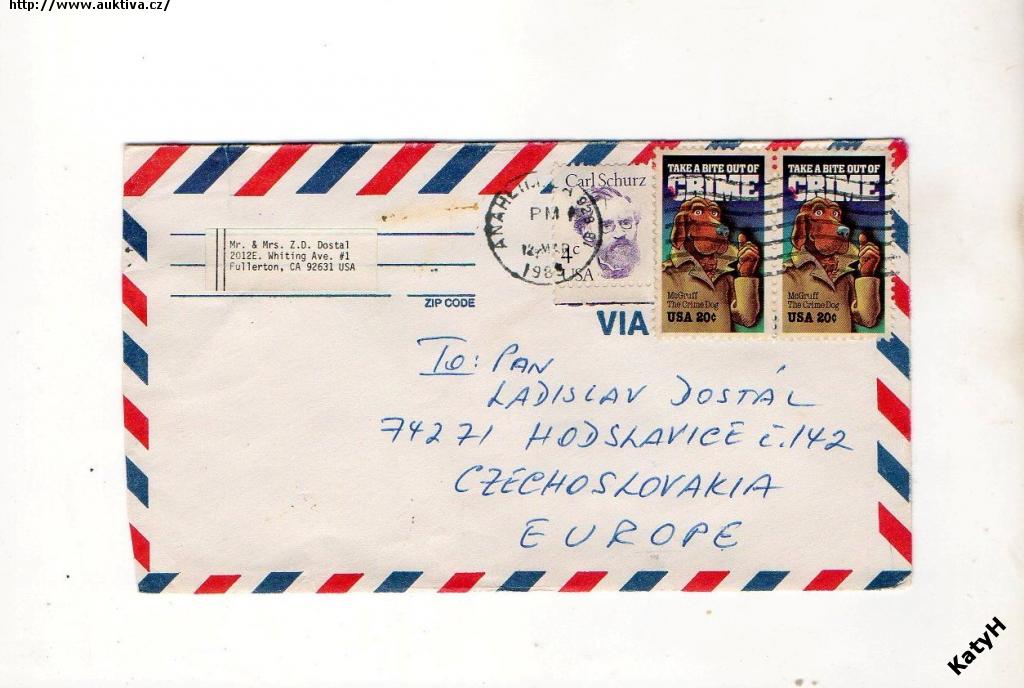 http://www.auktiva.cz/
Mr. & Mrs. Z.D. Dostal
2012E. Whiting Ave. #1
Fullerton, CA 92631 USA
ZIP CODE
ANAHEIM
928
PM
12 MAR
198
Carl Schurz
4c
USA
TAKE A BITE OUT OF
CRIME
McGruff
The Crime Dog
USA 20¢
TAKE A BITE OUT OF
CRIME
McGruff
The Crime Dog
USA 20¢
VIA
To: PAN
LADISLAV DOSTÁL
74271 HODSLAVICE č.142
CZECHOSLOVAKIA
EUROPE
KatyH